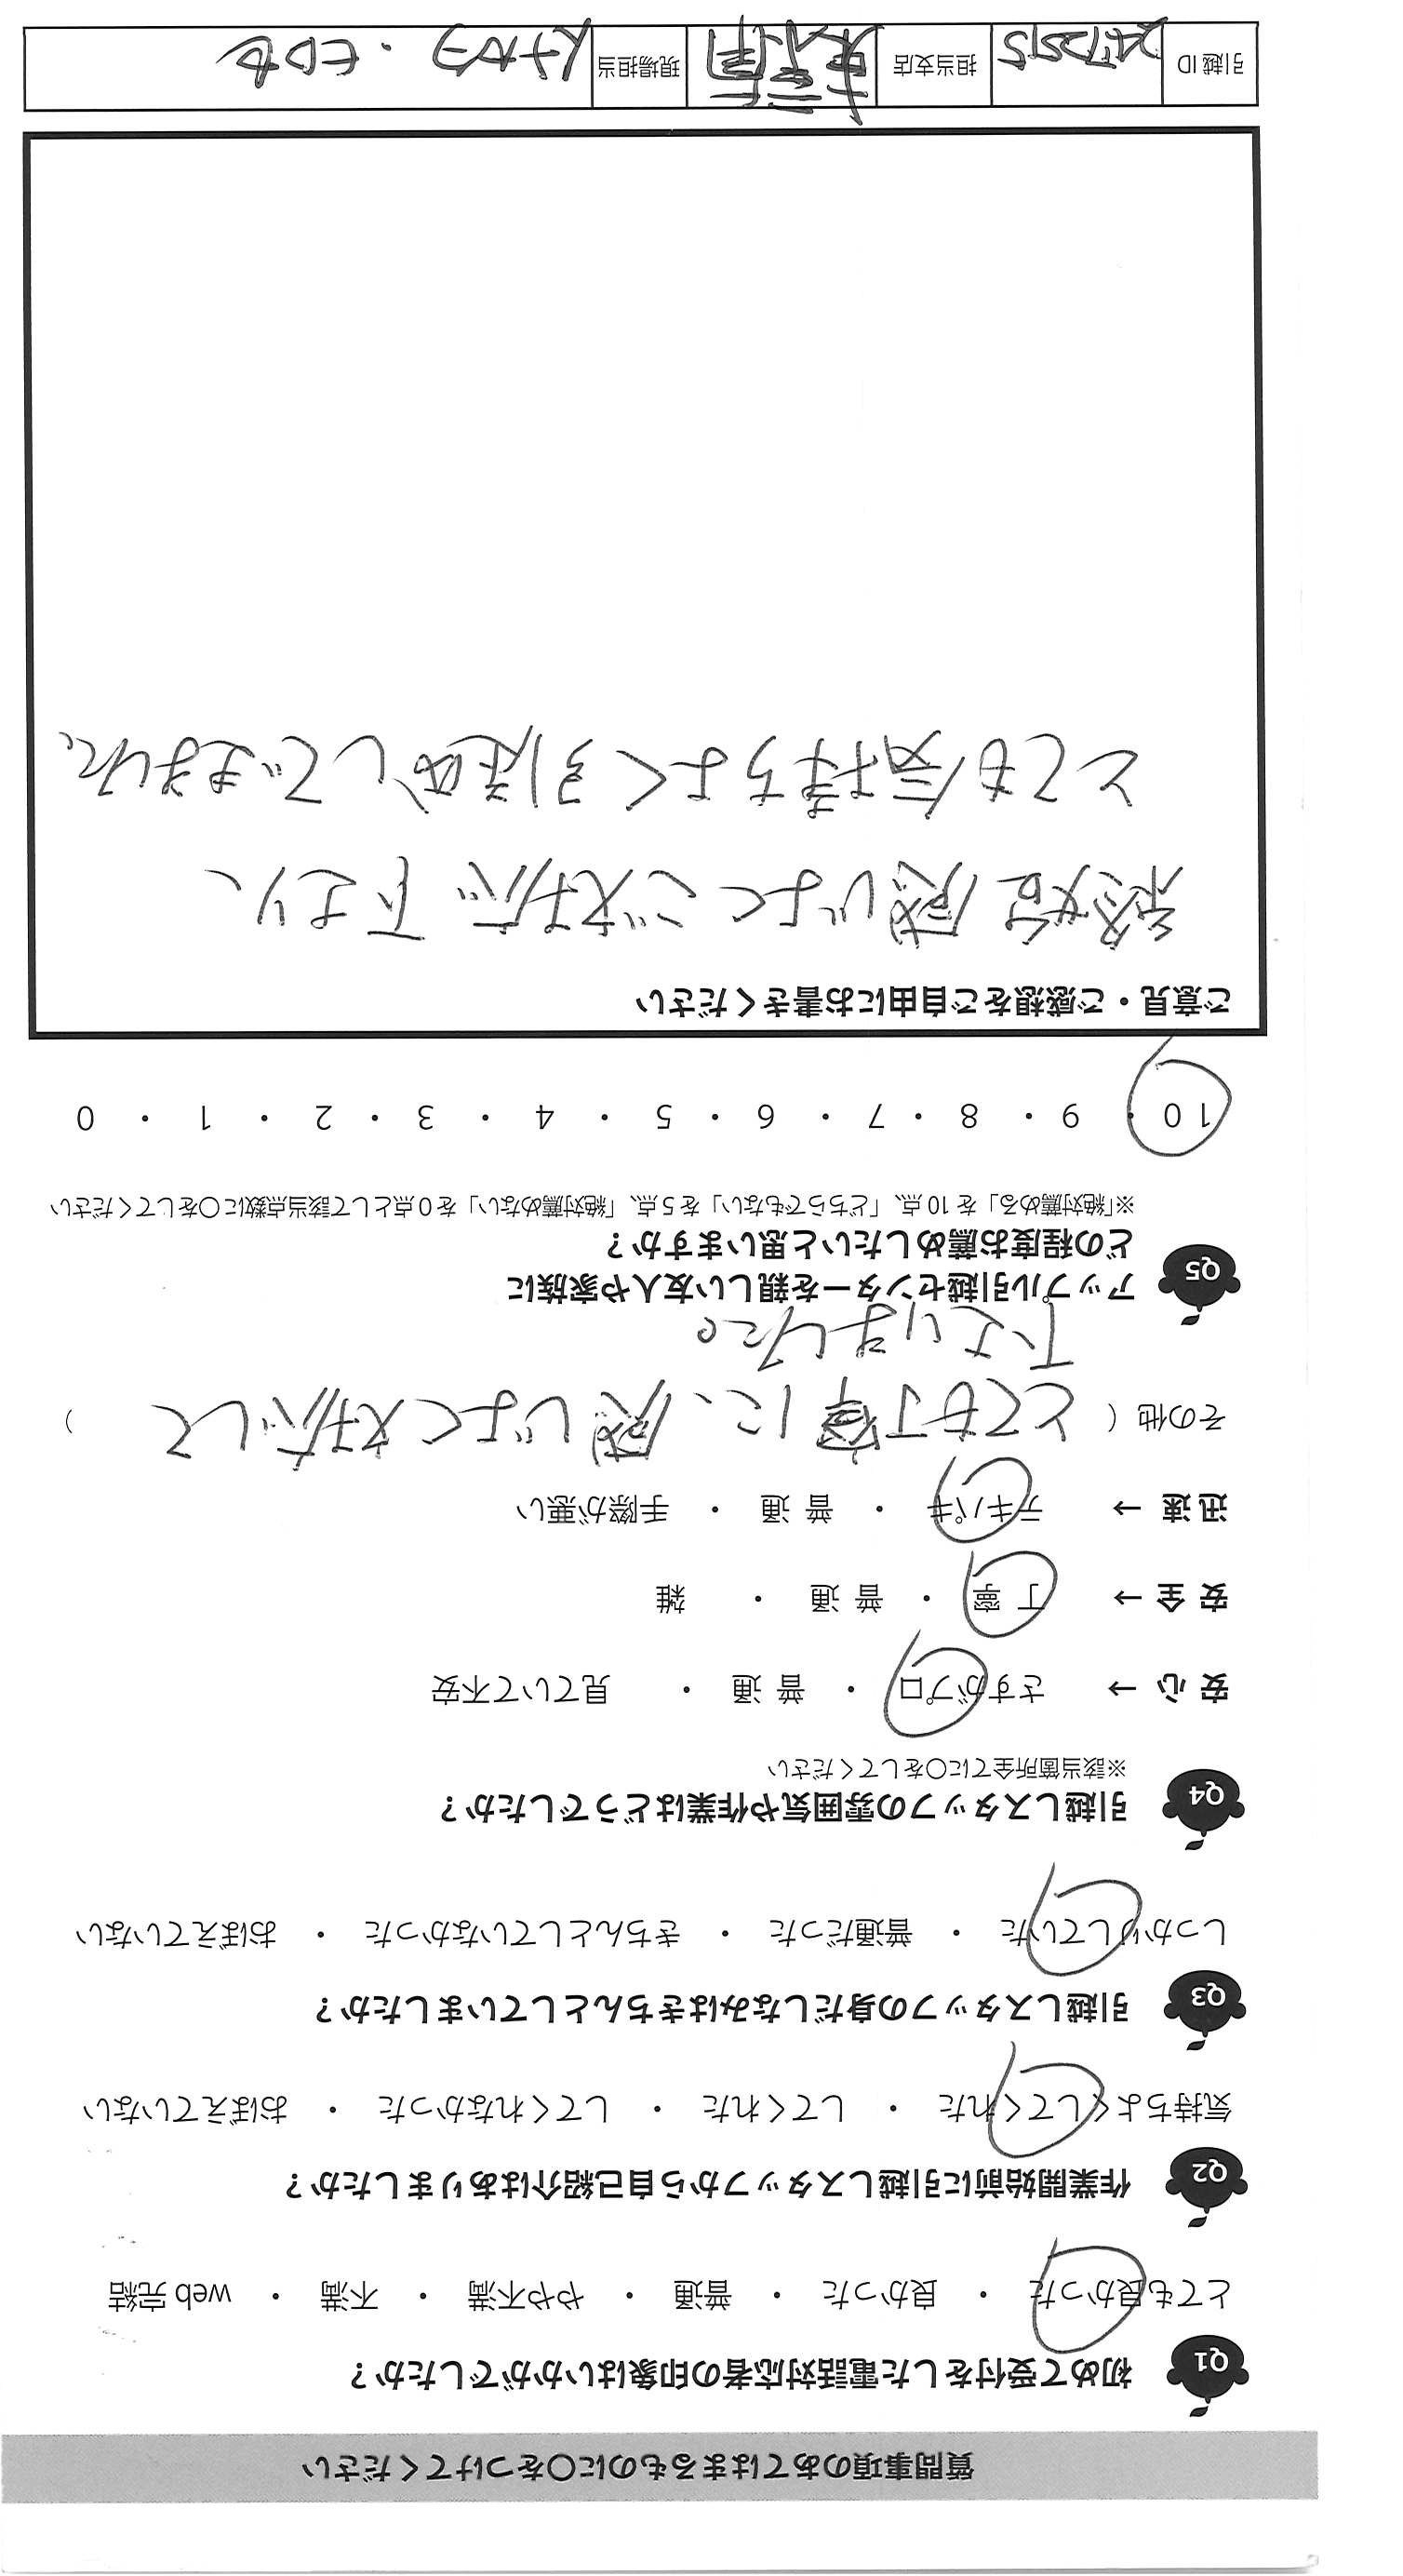 質問事項のあてはまるものに〇をつけてください
Q1 初めて受付をした電話対応者の印象はいかがでしたか？
とても良かった ・ 良かった ・ 普通 ・ やや不満 ・ 不満 ・ web 完結
Q2 作業開始前に引越しスタッフから自己紹介はありましたか？
気持ちよくしてくれた ・ してくれた ・ してくれなかった ・ おぼえていない
Q3 引越しスタッフの身だしなみはきちんとしていましたか？
しっかりしていた ・ 普通だった ・ きちんとしていなかった ・ おぼえていない
Q4 引越しスタッフの雰囲気や作業はどうでしたか？
※該当箇所全てに〇をしてください
安 心 → さすがプロ ・ 普 通 ・ 見ていて不安
安 全 → 丁 寧 ・ 普 通 ・ 雑
迅 速 → テキパキ ・ 普 通 ・ 手際が悪い
その他（とても丁寧に、感じよく対応して）
下さいました。
Q5 アップル引越センターを親しい友人や家族に
どの程度お薦めしたいと思いますか？
※「絶対薦める」を 10 点、「どちらでもない」を 5 点、「絶対薦めない」を 0 点として該当点数に〇をしてください
10 ・ 9 ・ 8 ・ 7 ・ 6 ・ 5 ・ 4 ・ 3 ・ 2 ・ 1 ・ 0
ご意見・ご感想をご自由にお書きください
終始感じよくご対応下さり、
とても気持ちよく引越しできました。
引越 ID 担当支店 現場担当